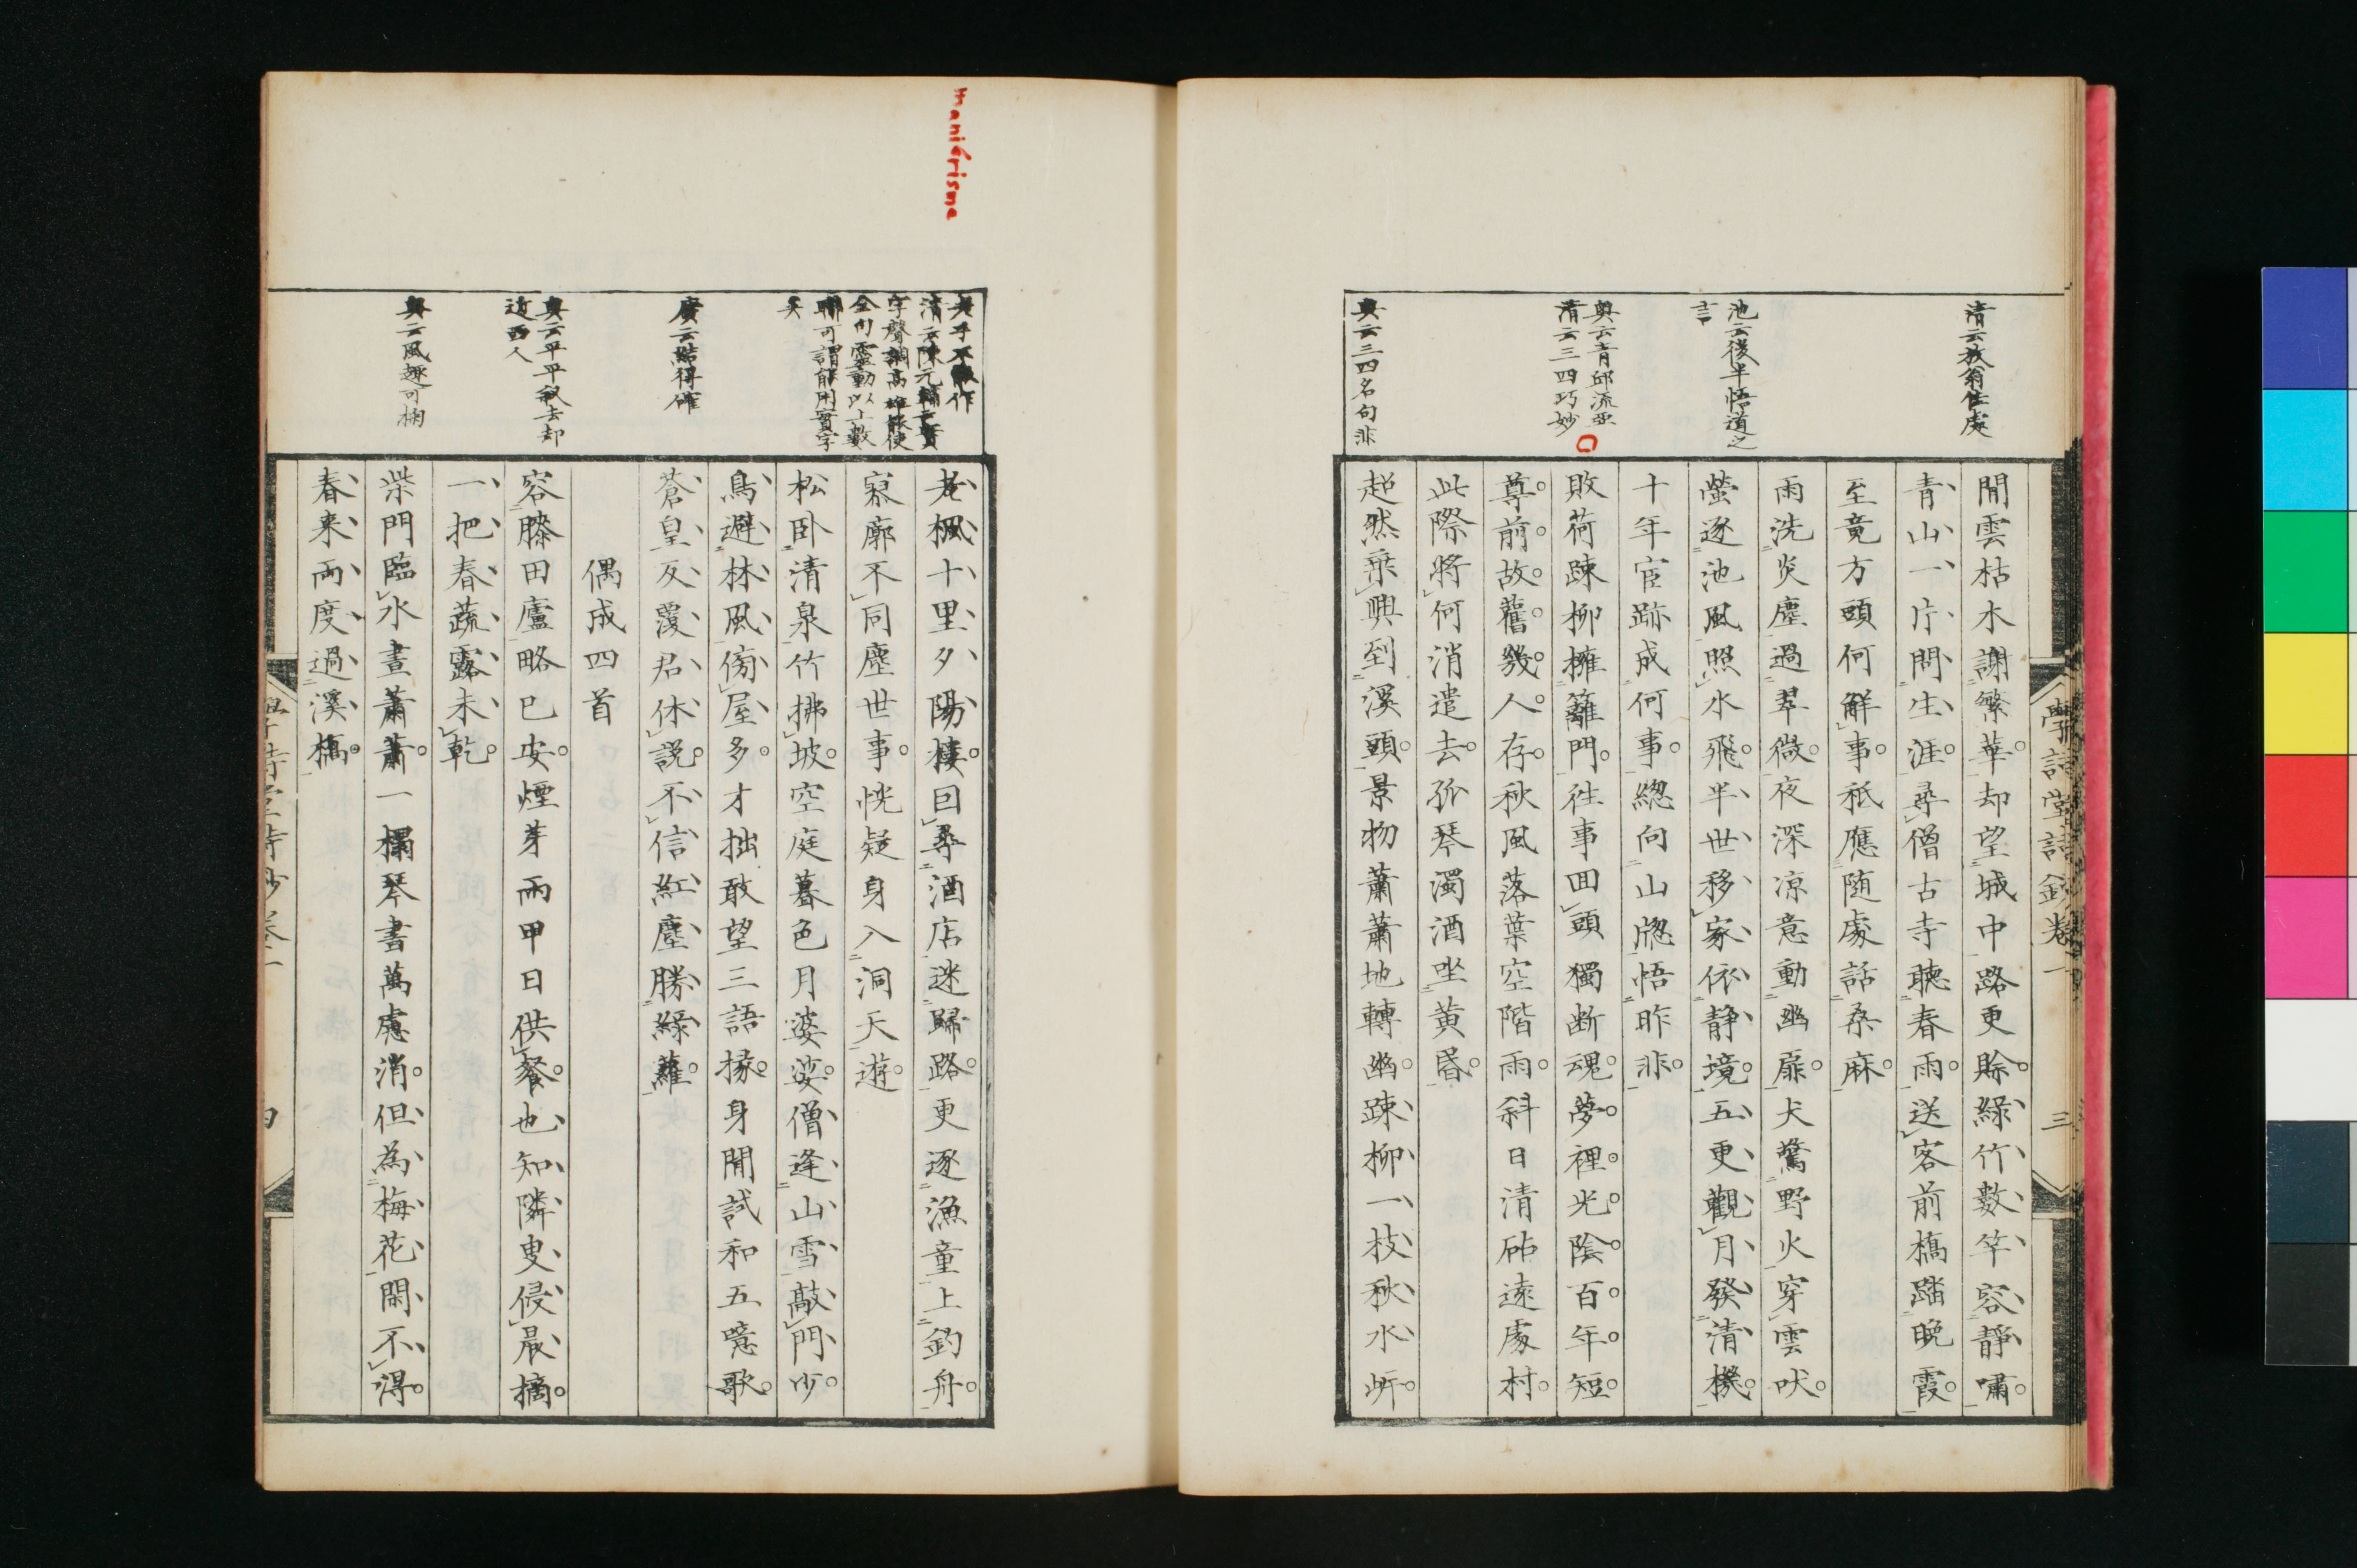 清云放翁佳處
池云後半悟道之
言
奥云青邱流亞
清云三四巧妙
奥云三四名句非
學詩堂詩鈔卷一
三
閒雲枯木謝繁華却望城中路更賒綠竹數竿容靜嘯
青山一片問生涯尋僧古寺聽春雨送客前橋踏晩霞
至竟方頭何解事秖應随處話桑麻
雨洗炎塵過翠微夜深凉意動幽扉犬驚野火穿雲吠
螢逐池風照水飛半世移家依静境五更觀月發清機
十年宦跡成何事總向山牕悟昨非
敗荷疎柳擁籬門徃事回頭獨断魂夢裡光陰百年短
尊前故舊幾人存秋風落葉空階雨斜日清砧遠處村
此際將何消遣去孤琴濁酒坐黄昏
超然乗興到溪頭景物蕭蕭地轉幽疎柳一枝秋水岍
Maniérisme
奥手不能作
清云陳元輔云實
字聲調高雄能使
全句靈動以上數
聯可謂能用實字
矣
廣云結得確
奥云平平叙去却
近西人
奥云風趣可掬
老楓十里夕陽樓回尋酒店迷歸路更逐漁童上釣舟
寂廓不同塵世事恍疑身入洞天遊
松卧清泉竹拂坡空庭暮色月婆娑僧逢山雪敲門少
鳥避林風傍屋多才拙敢望三語掾身閒試和五噫歌
蒼皇反覆君休説不信紅塵勝綠蘿
偶成四首
容膝田廬略已安煙芽雨甲日供餐也知隣叟侵晨摘
一把春蔬露未乾
柴門臨水晝蕭蕭一榻琴書萬慮消但為梅花閑不得
春来両度過溪橋
學詩堂詩鈔卷一
四